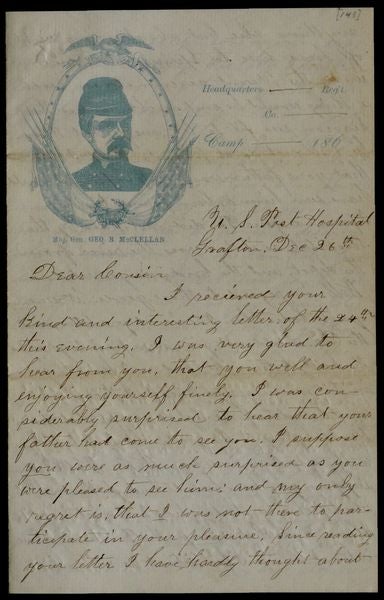 [143]
Headquarters Regt.
Co.
Camp 186
Maj. Gen. GEO. B. McCLELLAN
U. S. Post Hospital
Grafton, Dec 26th
Dear Cousin
I recieved your
kind and interesting letter of the 24th
this evening. I was very glad to
hear from you, that you well and
enjoying yourself finely. I was con-
siderably surprised to hear that your
father had come to see you. I suppose
you were as much surprised as you
were pleased to see him; and my only
regret is, that I was not there to par-
ticipate in your pleasure. Since reading
your letter I have hardly thought about